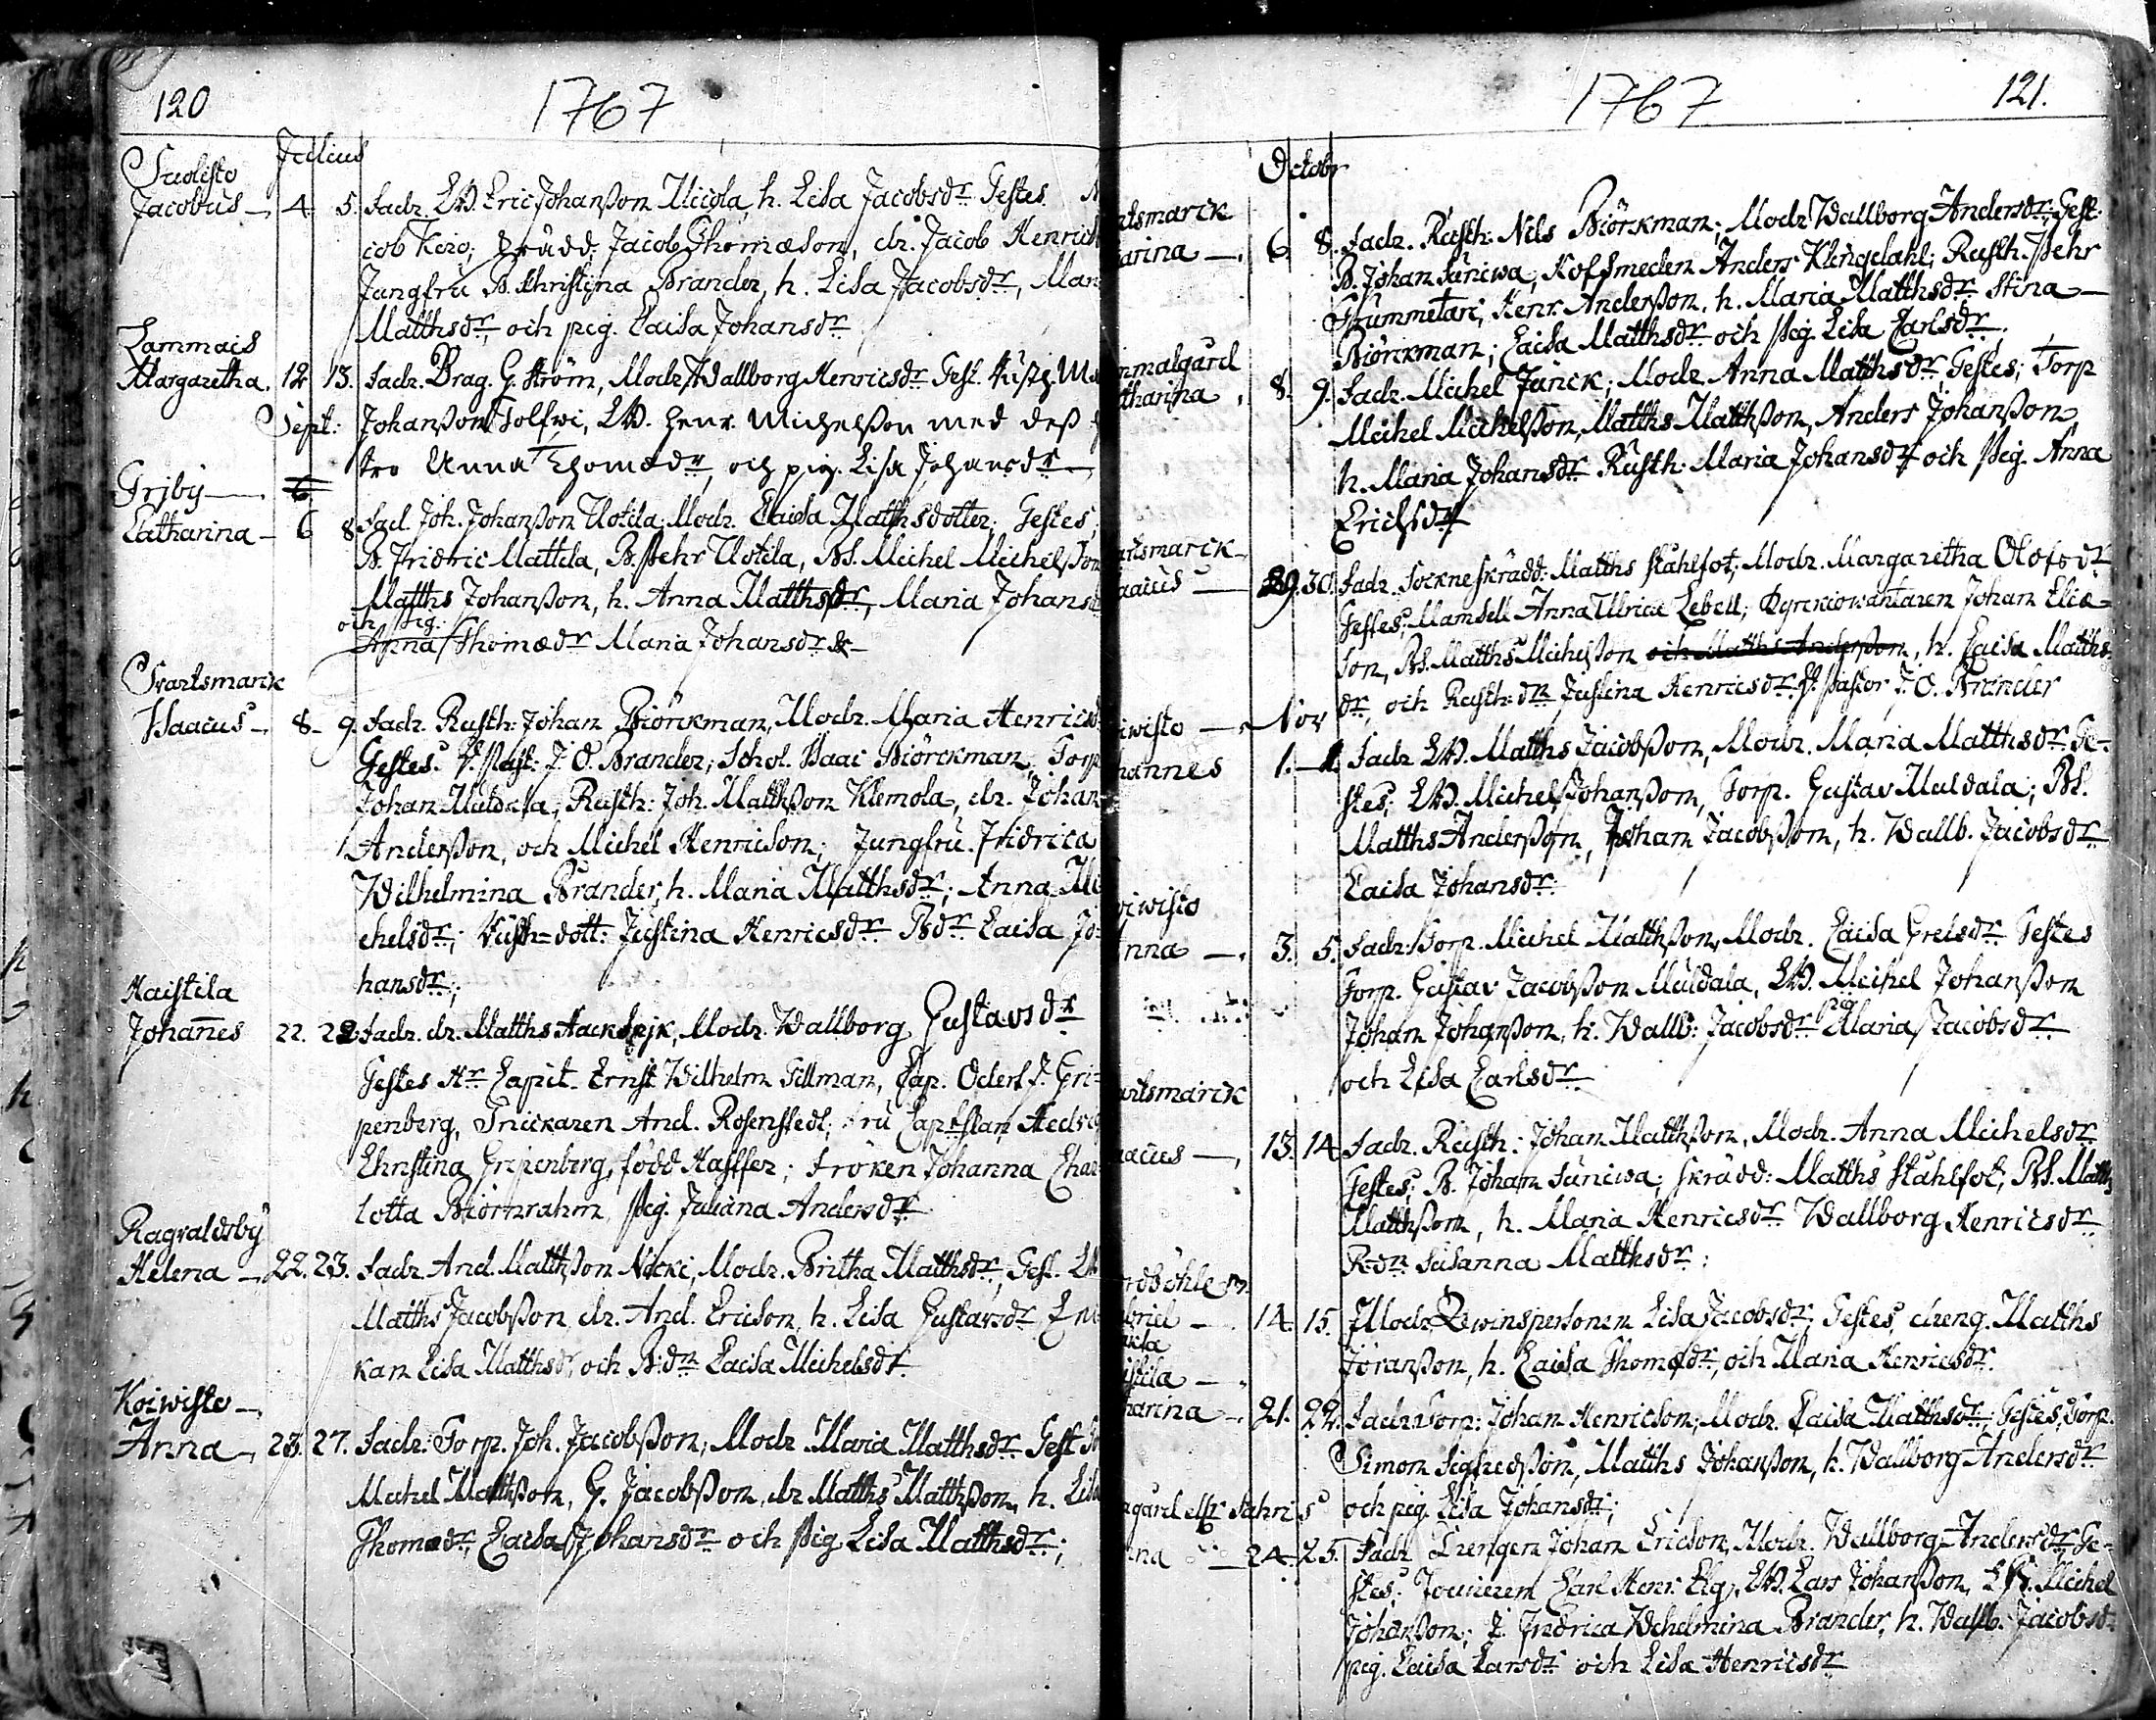 120
1767
Julius
Jacobus — 4. 5. Fadr. Eric Johanßon h. Lisa Jacobsdr Testes
Skrädd. Jacob Thomæson, dr. Jacob Henric
Jungfru B. Christina Brander, h. Lisa Jacobsdr,
Matthsdr, och pig. Caisa Johansdr
Lammais
Margaretha. 12 13. Fadr. Brag. G. Ström, Modr. Wallborg Henricsdr Test.
Sept: Johanßon Tolfwi, Henr. Michelßon med deß
Anna Thomædr, och pig. Lisa Johansdr
Griby — 6
Catharina — 6 8. Fad. Joh. Johanßon Uotila, Modr. Caisa Matthsdotter; Testes,
B. Fridric Mattila, B. Pehr Uotila, BS. Michel Michelßon
Matths Johanßon, h. Anna Matthsdr, Maria Johans
och pig.
Anna Thomædr Maria Johansdr
Svartsmarck
Isaacus — 8. 9. Fadr. Rusth: Johan Biörckman, Modr. Maria Henricsd
Testes. V. Past: J. O. Brander, Schol. Isaac Biörckman, Torp
Johan Muldala, Rusth: Joh. Matthßon Klemola, dr. Johan
Anderßon, och Michel Henricson; Jungfru. Fridrica
Wilhelmina Brander, h. Maria Matthsdr; Anna Mi
chelsdr; Rusth=dott: Justina Henricsdr Bdr Caisa Jo=
hansdr;
Haistila
Johañes 22. 22. Fadr. dr. Matths Modr. Wallborg Gustavsdr
Testes Hr Capit. Ernst Wilhelm Tillman, Cap. Gri=
penberg, Snickaren And. Rosenstedt; Fru Hedvig
Christina Gripenberg, född Haßfer; Fröken Johanna Char
lotta Biörnrahm, Pig. Juliana Andersdr
Ragvaldsby
Helena — 22. 23. Fadr. And. Matthßon Modr. Britha Matthsdr, Test.
Matths Jacobßon, dr. And. Ericson, h. Lisa Gustavsdr En
kan Lisa Matthsdr, och B:dr Caisa Michelsdr
Koiwisto —
Anna — 23. 27. Fadr: Torp. Joh. Jacobßon, Modr. Maria Matthsdr Test
Michel Matthßon, G. Jacobßon, dr Matths Matthßon, h. Lisa
Thomædr, Caisa Johansdr och Pig Lisa Matthsdr;
1767
121.
Octobr
rtsmarck
arina — 6. 8. Fadr. Rusth: Nils Biörckman; Modr Wallborg Andersdr; Test:
B. Johan Suniwa, Hofsmeden Anders Klingdahl; Rusth. Pehr
Henr. Anderßon, h. Maria Matthsdr Stina
Biörckman; Caisa Matthsdr och Pig. Lisa Carlsdr.
mmalgård
tharina, 8. 9. Fadr. Michel Junck; Modr Anna Matthsdr, Testes; Torp
Michel Michelßon, Matths Matthßon, Anders Johanßon,
h. Maria Johansdr Rusth: Maria Johansdr och Pig. Anna
Erichsdr
rtsmarck
aacus — 29. 30. Fadr. Sockneskrädd: Matths Ståhlfot; Modr. Margaretha Olofsdr
Testes, Mamsell Anna Ulrica Lebell, Kyrckiowäktaren Johan Eliæ=
son, BS. Matths Michelßon och Matths Anderßon, h. Caisa Matths
dr, och Rusth:dr Justina Henricsdr. V. Pastor J. O. Brander
iwisto — Nov
hannes 1. — 1. Fadr. Matths Jacobßon, Modr. Maria Matthsdr Te=
stes; Michel Johanßon, Torp. Gustav Muldala; BS.
Matths Anderßon, Johan Jacobßon, h. Wallb. Jacobsdr
Caisa Johansdr
iwisto
nna — 3. 5. Fadr: Torp. Michel Matthßon, Modr. Caisa Grelsdr Testes
Torp. Gustav Jacobßon Muldala, Michel Johanßon
Johan Johanßon, h. Wallb: Jacobsdr Pig Maria Jacobsdr
och Lisa Carlsdr
artsmarck
aacus — 13. 14 Fadr. Rusth: Johan Matthßon, Modr. Anna Michelsdr
Testes; B. Johan Suniwa; Skrädd: Matths Ståhlfot, BS. Matths
Matthßon, h. Maria Henricsdr Wallborg Henricsdr
R:dr Susanna Matthsdr:
rdböhle
briel — 14. 15. Modr. Qwinspersonen Lisa Jacobsdr, Testes, dreng. Matths
Jöranßon, h. Caisa Thomædr, och Maria Henricsdr.
istila —
harina — 21. 22. Fadr: Torp: Johan Henricson, Modr. Caisa Matthsdr; Testes, Torp.
Simon Sigfredßon, Matths Johanßon, h. Wallborg Andersdr
och pig. Lisa Johansdr;
gård
na — 24. 25. Fadr Drengen Johan Ericson, Modr. Wallborg Andersdr Te=
stes; Carl Henr. Elg, Lars Johanßon, Michel
Johanßon; J. Fridrica Wilhelmina Brander, h. Wallb. Jacobsd
pig. Caisa Larsdr och Lisa Henricsdr